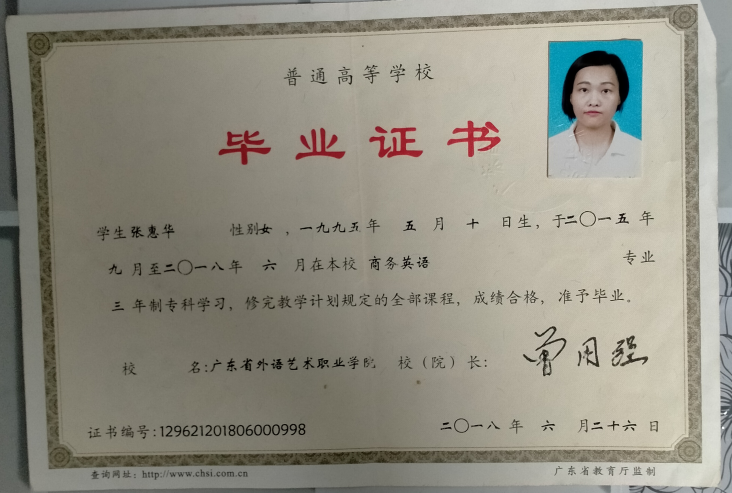 普通高等学校
毕业证书
学生张惠华 性别女，一九九五年 五 月 十 日生，于二〇一五 年
九 月至二〇一八年 六 月在本校 商务英语 专业
三 年制专科学习，修完教学计划规定的全部课程，成绩合格，准予毕业。
校 名:广东省外语艺术职业学院 校（院）长: 曾用强
证书编号:129621201806000998 二〇一八 年 六 月二十六 日
查询网址: http://www.chsi.com.cn 广东省教育厅监制